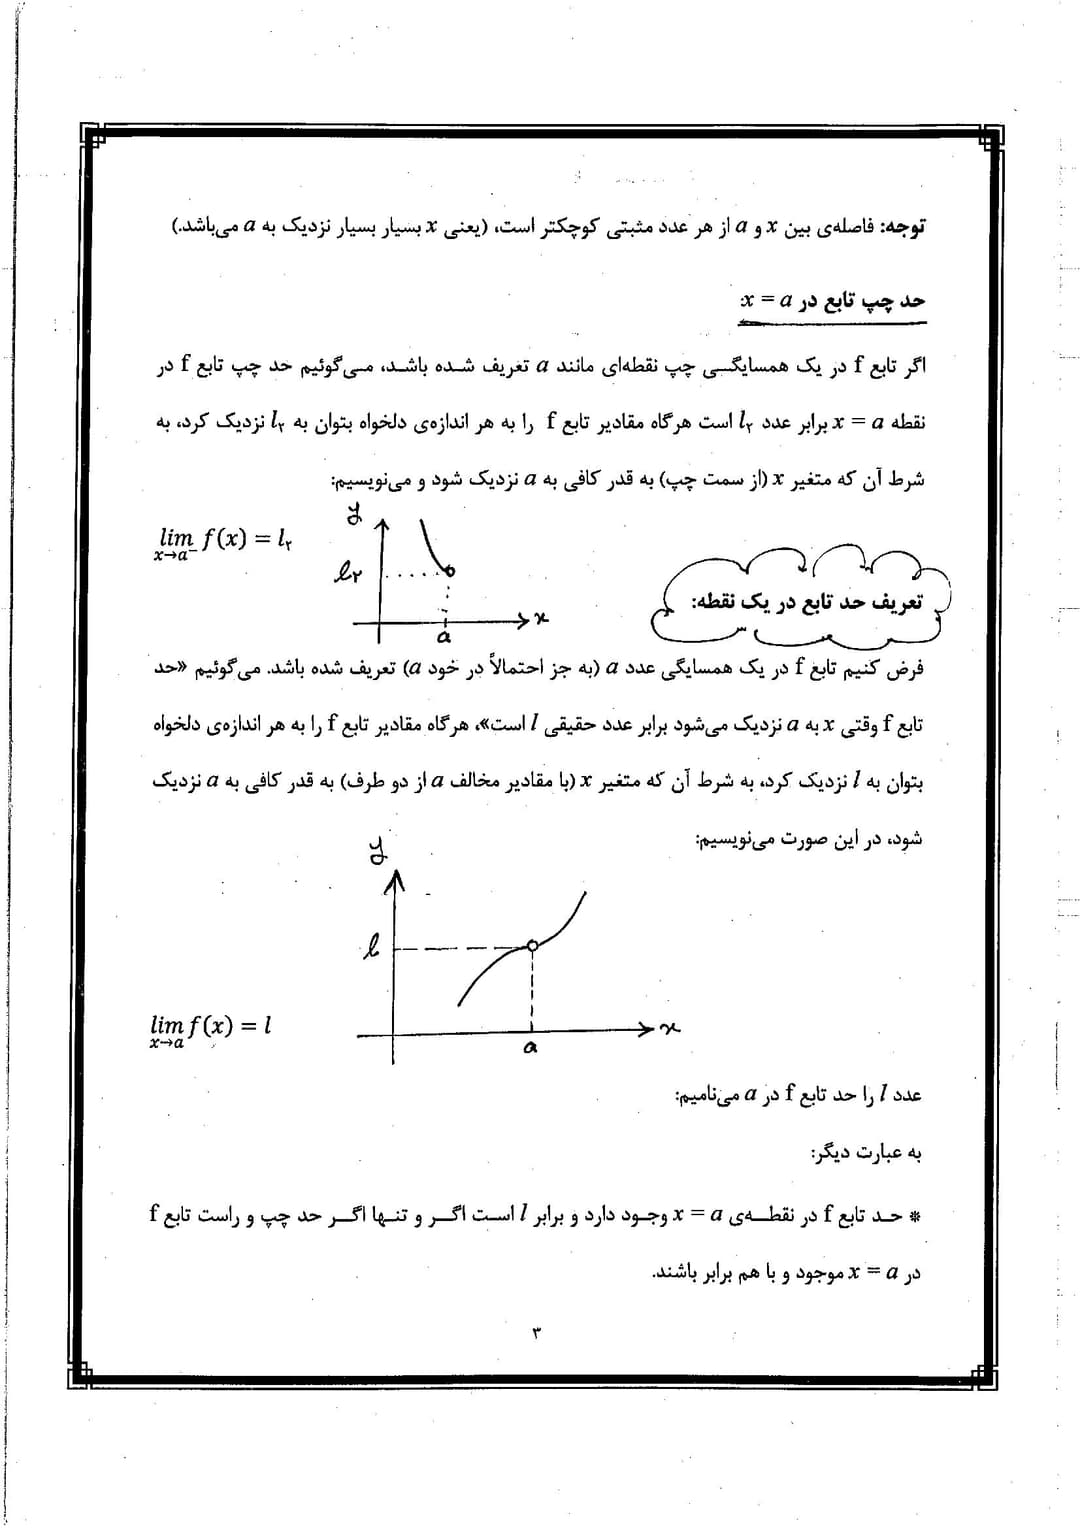 توجه: فاصله‌ی بین x و a از هر عدد مثبتی کوچکتر است، (یعنی x بسیار بسیار نزدیک به a می‌باشد.)
حد چپ تابع در x = a:
اگر تابع f در یک همسایگی چپ نقطه‌ای مانند a تعریف شده باشد، می‌گوئیم حد چپ تابع f در
نقطه x = a برابر عدد l۲ است هرگاه مقادیر تابع f را به هر اندازه‌ی دلخواه بتوان به l۲ نزدیک کرد، به
شرط آن که متغیر x (از سمت چپ) به قدر کافی به a نزدیک شود و می‌نویسیم:
lim f(x) = l۲
x→a⁻
y
l۲
a
x
تعریف حد تابع در یک نقطه:
فرض کنیم تابع f در یک همسایگی عدد a (به جز احتمالاً در خود a) تعریف شده باشد. می‌گوئیم «حد
تابع f وقتی x به a نزدیک می‌شود برابر عدد حقیقی l است»، هرگاه مقادیر تابع f را به هر اندازه‌ی دلخواه
بتوان به l نزدیک کرد، به شرط آن که متغیر x (با مقادیر مخالف a از دو طرف) به قدر کافی به a نزدیک
شود، در این صورت می‌نویسیم:
y
l
a
x
lim f(x) = l
x→a
عدد l را حد تابع f در a می‌نامیم:
به عبارت دیگر:
* حد تابع f در نقطه‌ی x = a وجود دارد و برابر l است اگر و تنها اگر حد چپ و راست تابع f
در x = a موجود و با هم برابر باشند.
۳